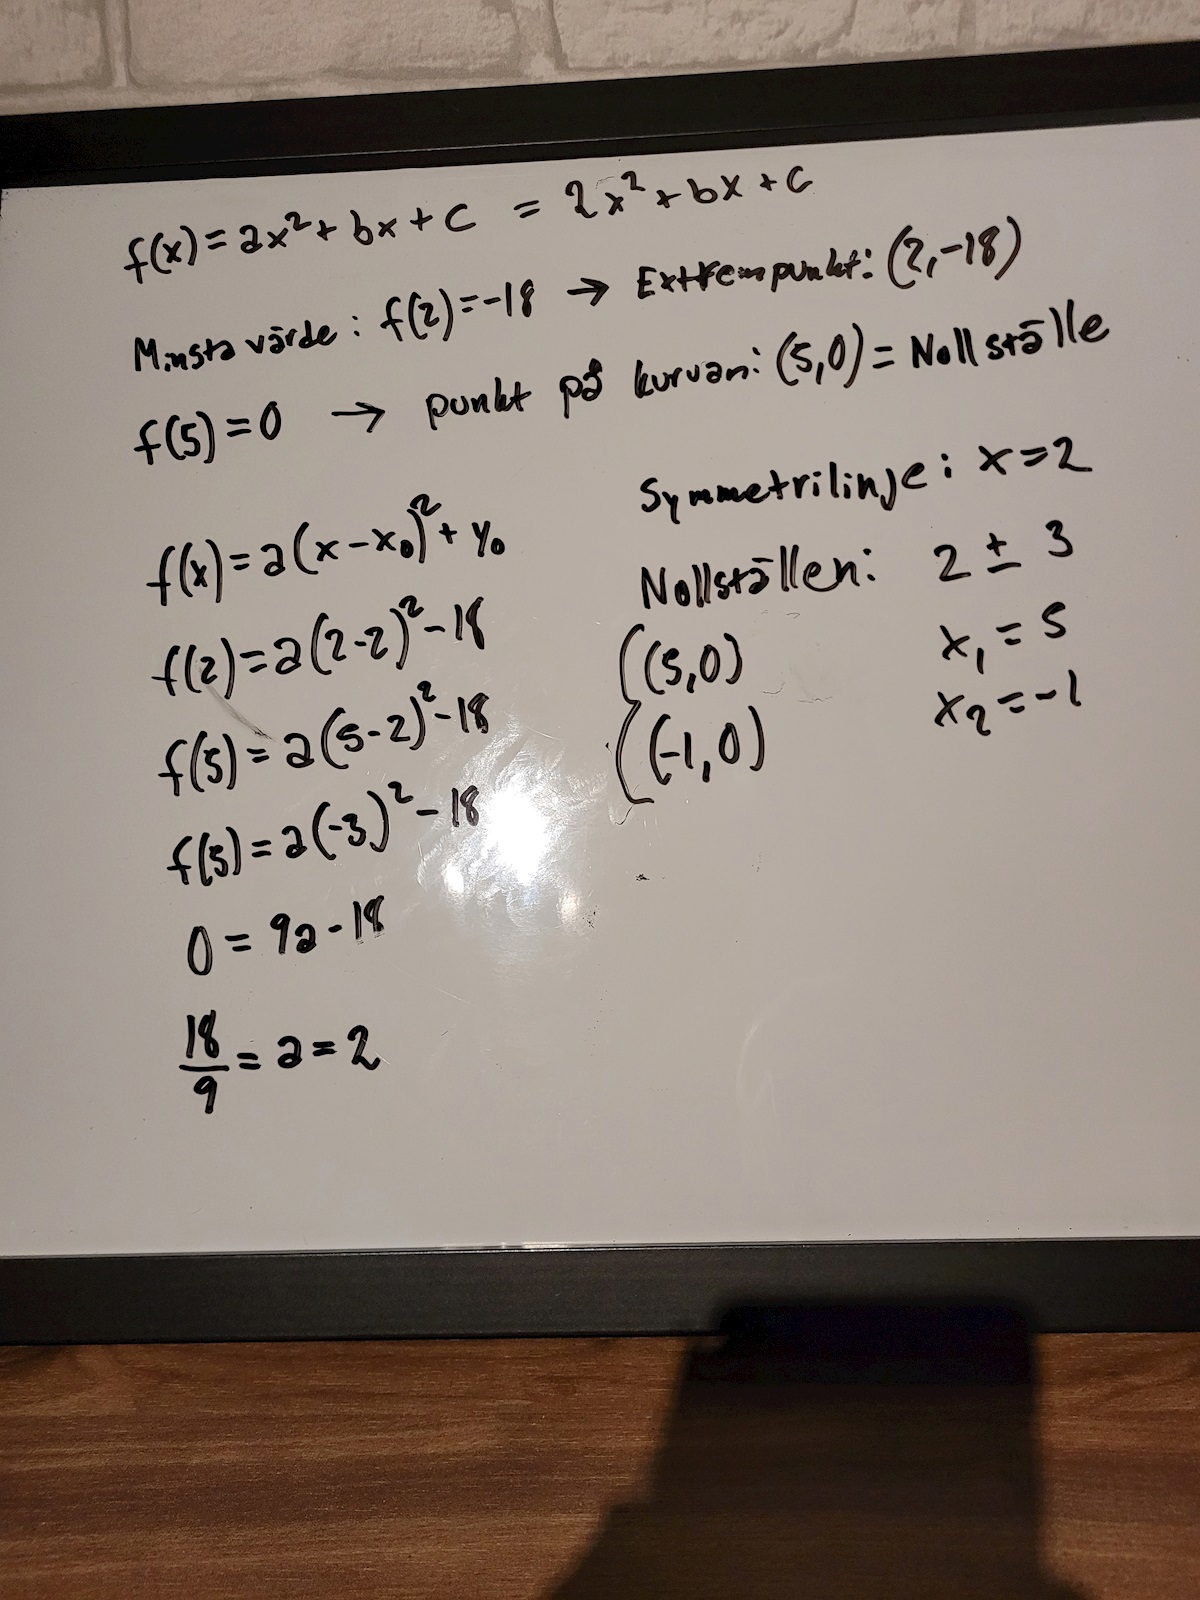 f(x) = ax² + bx + c = 2x² + bx + c
Minsta värde: f(2) = -18 → Extrempunkt: (2, -18)
f(5) = 0 → punkt på kurvan: (5,0) = Nollställe
Symmetrilinje: x = 2
f(x) = a(x - x₀)² + y₀
Nollställen: 2 ± 3
f(2) = a(2-2)² - 18
(5,0)
x₁ = 5
f(5) = a(5-2)² - 18
(-1,0)
x₂ = -1
f(5) = a(-3)² - 18
0 = 9a - 18
18/9 = a = 2